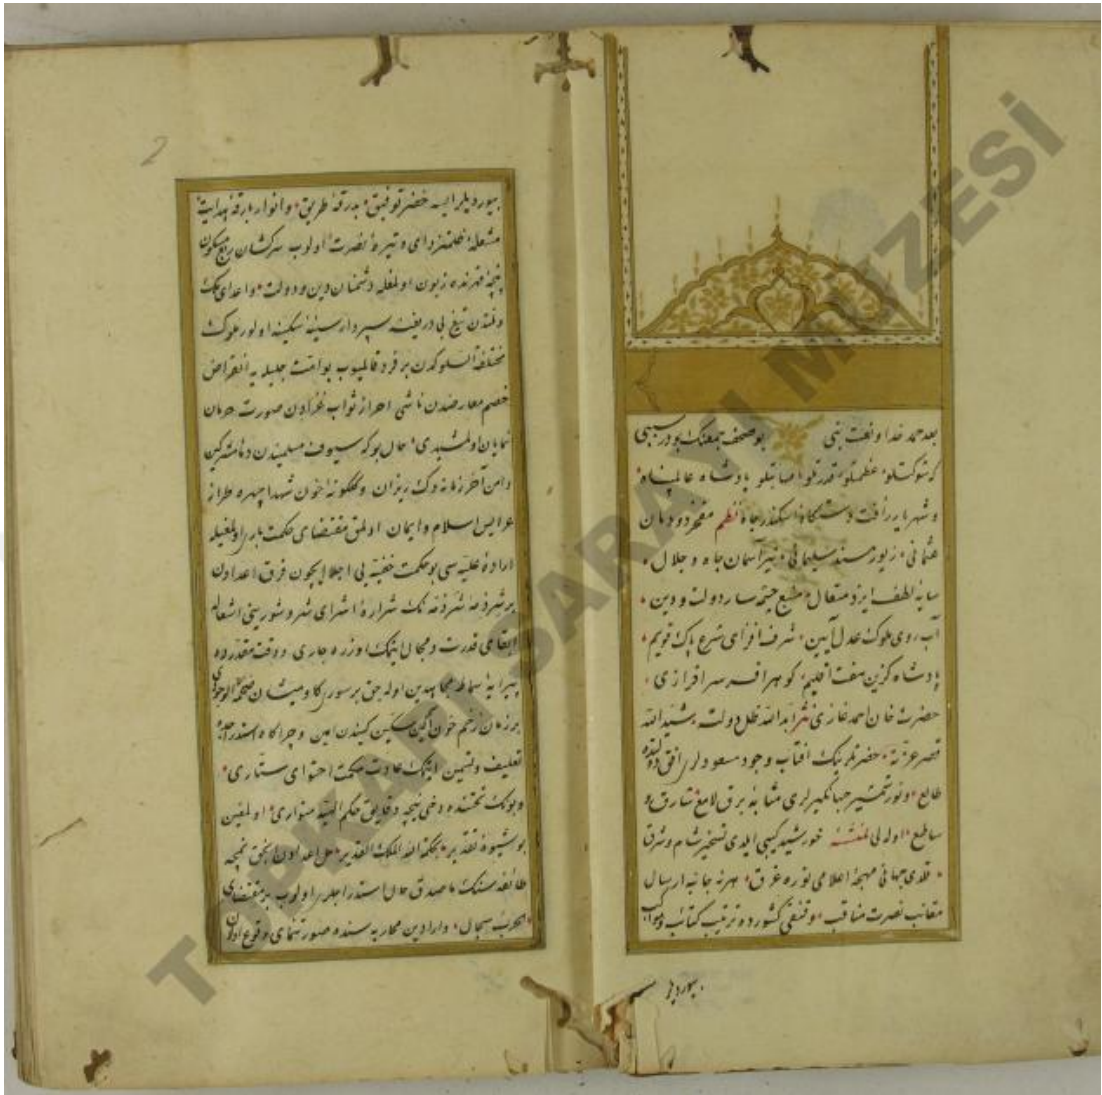 بعد حمد خدا و نعت نبی بو صحف جمعنك بودر سببی
كه شوكتلو عظمتلو قدرتلو مهابتلو پادشاه عالمپناه
و شهریار رأفت دستكاه اسكندر جاه نظم مفخر دودمان
عثمانی زیور مسند سلیمانی نیر آسمان جاه و جلال
سایهٔ لطف ایزد متعال منبع چشمه سار دولت و دین
آب روی ملوك عدل آیین شرف افزای شرع پاك قویم
پادشاه كزین هفت اقلیم كوهر افسر سرافرازی
حضرت خان احمد غازی نثر ابد الله ظل دولته و شید الله
قصر عزته حضرتلرینك افتاب وجود مسعودلری افق دولتده
طالع و نور شمشیر جهانكیرلری مثابهٔ برق لامع شارق و
ساطع اوله لی لمنشئه خورشید كیبی ایلدی تسخیر شام و شرق
قلدی جهانی مهجهٔ اعلامی نوره غرق هر نه جانبه ارسال
مقانب نصرت مناقب و قنغی كشوره ترتیب كتائب و مواكب
بیوردیلر
2
بیوردیلر ایسه خضر توفیق بدرقهٔ طریق و انوار بارقهٔ هدایت
مشعلهٔ ظلمتزدای تیرهٔ نصرت اولوب سركشان ربع مسكون
پنجهٔ قهرنده زبون اولمغله دشمنان دین و دولت و اعدای ملك
و ملتدن تیغ بی دریغنه سپردار سینهٔ سكینه اولور ملوك
مختلفة السلوكدن بر فرد قالمیوب بو امت جلیله یه انقراض
خصم معارضدن ناشی احراز ثواب غزادن صورت حرمان
نمایان اولمشیدی حال بوكه سیوف مسلمیندن دماء مشركین
دامن آخر زمانه دك ریزان و كلكونهٔ خون شهدا چهره طراز
عرایس اسلام و ایمان اولمق مقتضای حكمت باری اولمغیله
ارادهٔ علیه سی بو حكمت خفیه یی اجلا ایچون فرق اعدادن
بر شرذمه نك شرارهٔ اشرای شر و شورینی اشعاله
ابقای قدرت و مجال ایتمك اوزره جاری و وقت مقدرده
پیرایهٔ سماط مجاهدین اوله جق بر سوری كاو میشان
بر زمان زخم خون آكین سكین كیندن امین و چراكاه استدراجده
تعلیف و تسمین ایتمك عادت حكمت احتوای ستاری
و بوك تحتنده دخی نیچه دقایق حكم الهیه متواری اولمغین
بو شیوهٔ تقدیر بحكمة الله الملك القدیر اعدادن انجق نمچه
طائفه سنك ماصدق حال استدراجلری اولوب بر مقتضای
الحرب سجال وارادین محاربه سنده صورتنمای وقوع اولان